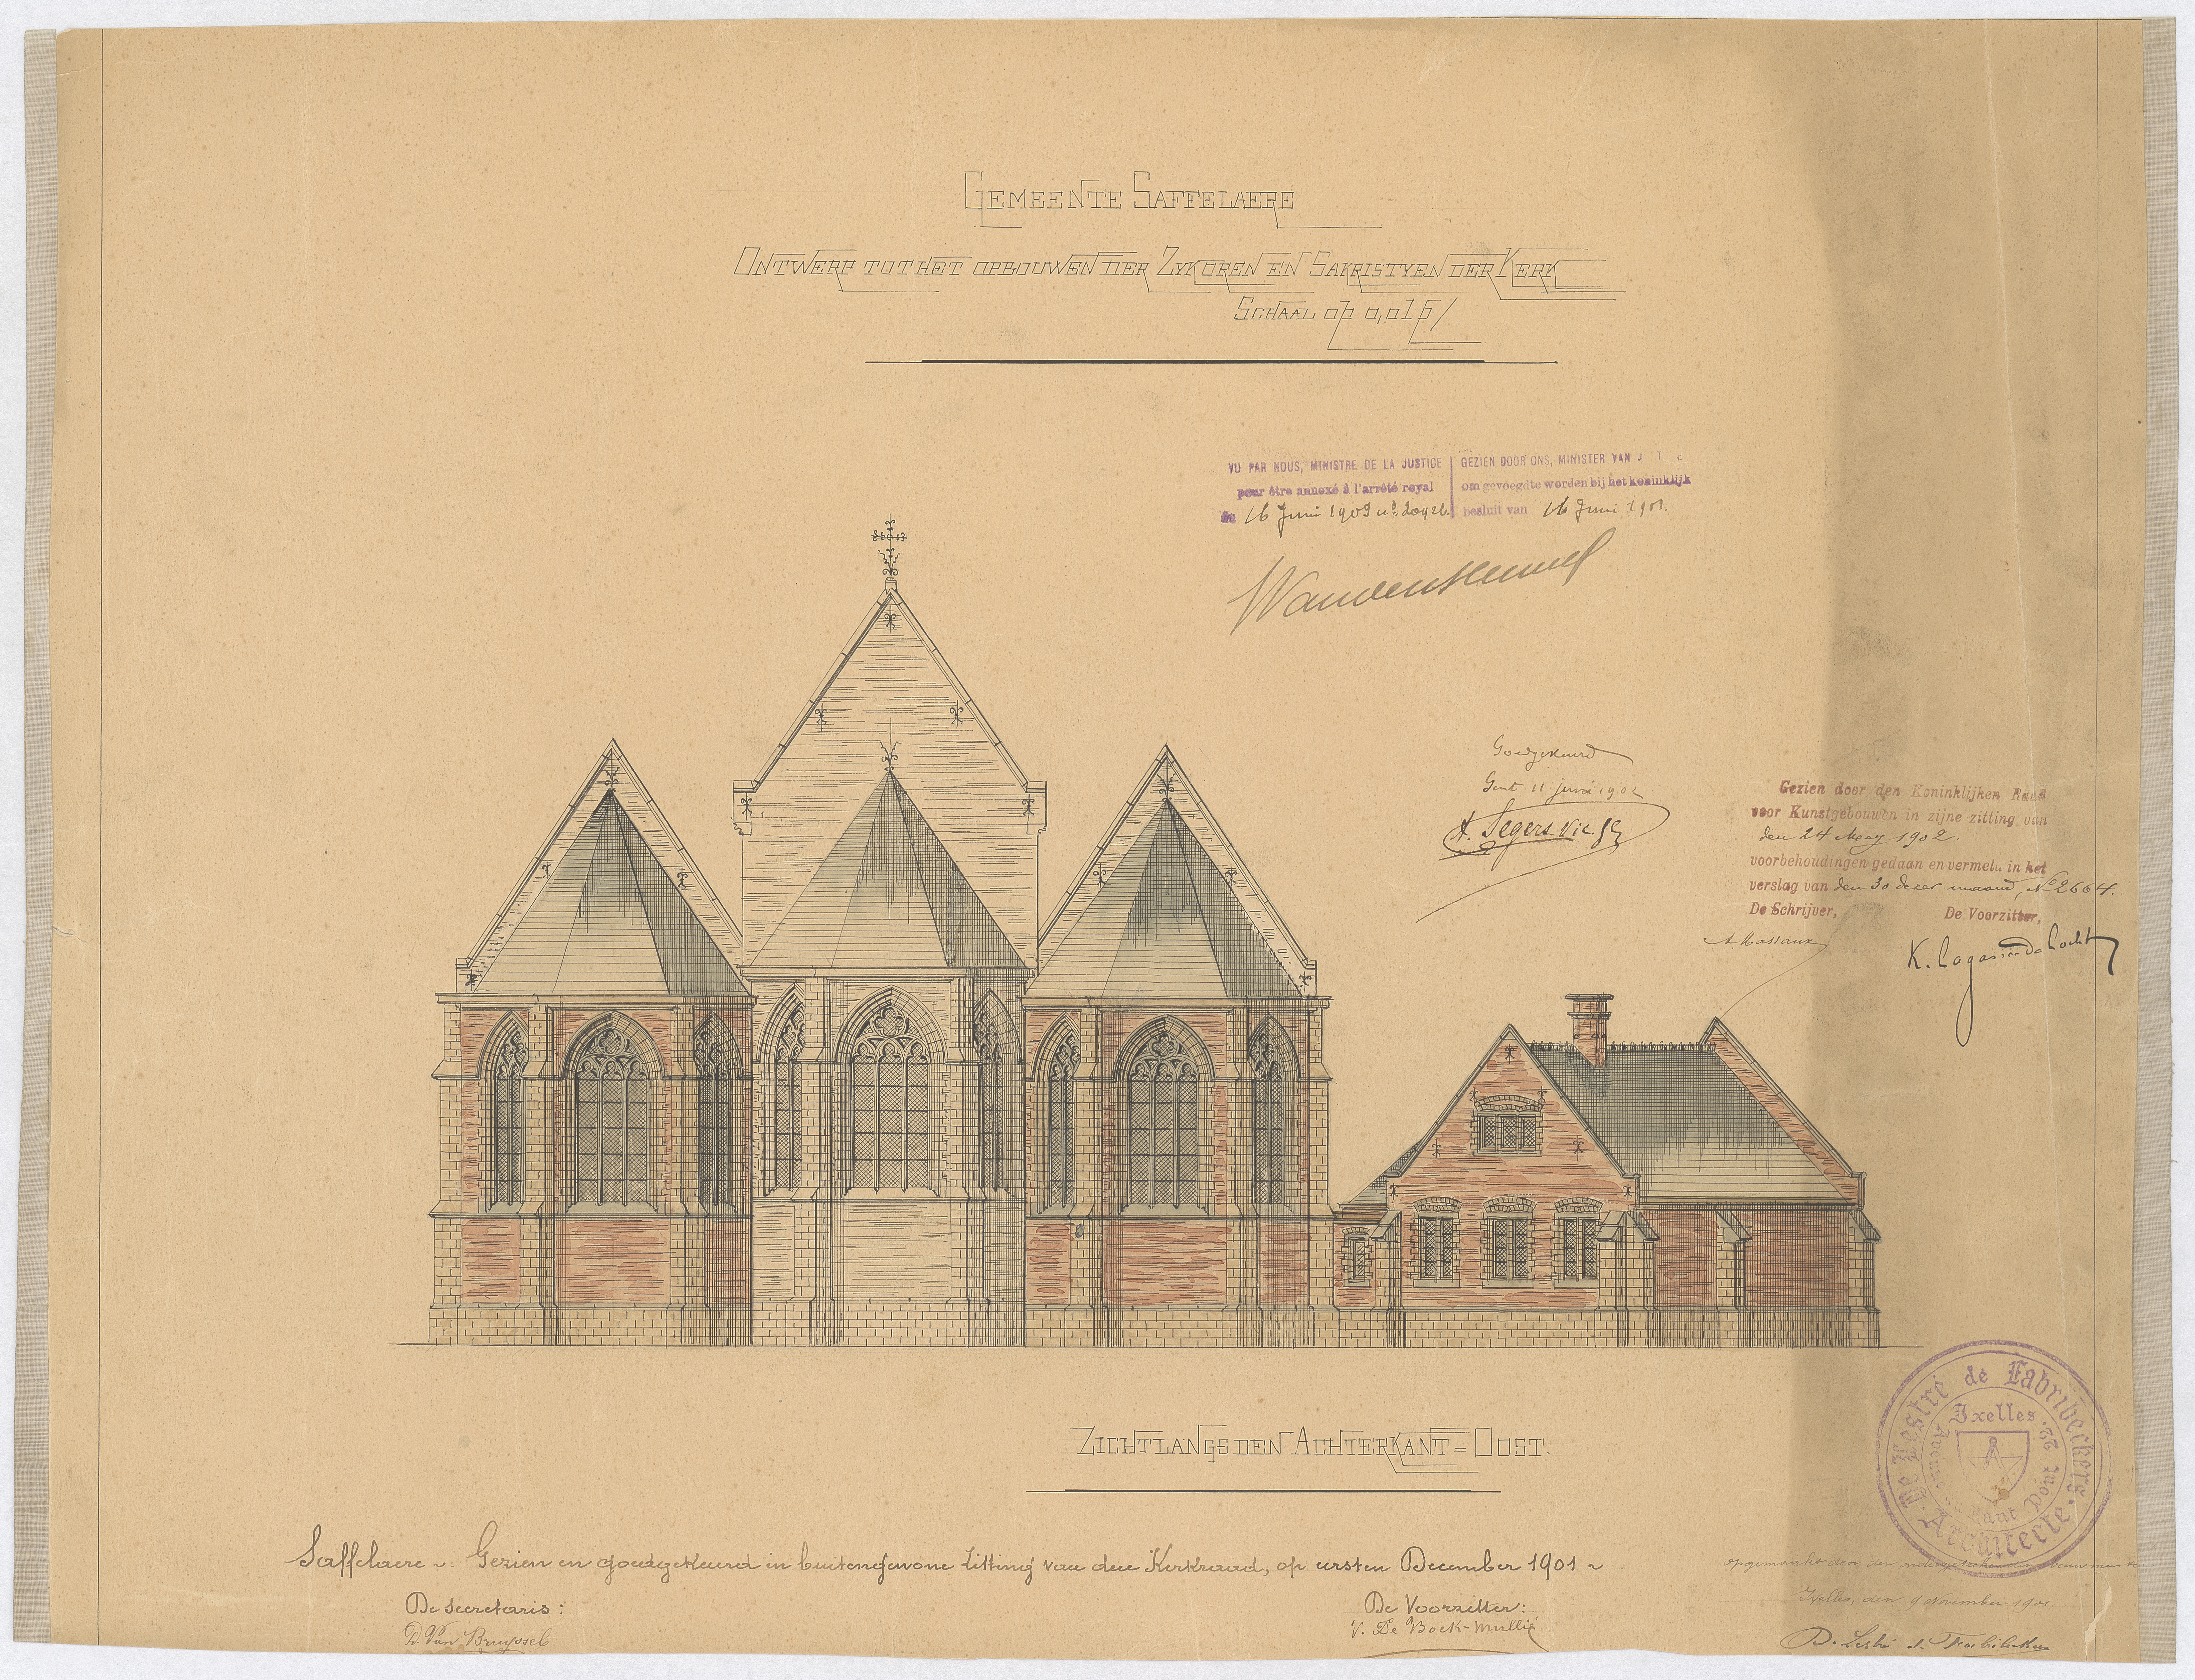 GEMEENTE SAFFELAERE
ONTWERP TOT HET OPBOUWEN DER ZYKOREN EN SAKRISTYEN DER KERK
SCHAAL op 0,01 p/
VU PAR NOUS, MINISTRE DE LA JUSTICE
pour être annexé à l'arrêté royal
du 16 Juni
GEZIEN DOOR ONS, MINISTER VAN
om gevoegd te worden bij het koninklijk
besluit van 16 Juni
Goedgekeurd
Gent 11 juni 1902
A. Segers Vic. G
Gezien door den Koninklijken Raad
voor Kunstgebouwen in zijne zitting van
den 24 Mey 1902.
voorbehoudingen gedaan en vermeld in het
verslag van den 30 dezer maand, No 2664.
De Schrijver,
De Voorzitter,
A. Massaux
K. Lagasse de Locht
ZICHT LANGS DEN ACHTERKANT = OOST.
De Lestré de Fabribeckers.
Architecte
Ixelles
22, Avenue Pont
Saffelaere Gezien en goedgekeurd in buitengewone zitting van den Kerkraad, op eersten December 1901
De secretaris:
D. Van Bruyssel
De Voorzitter:
V. De Bock-Mullié
opgemaakt door den ondergeteekenden bouwmeester
Ixelles, den 9 November 1901.